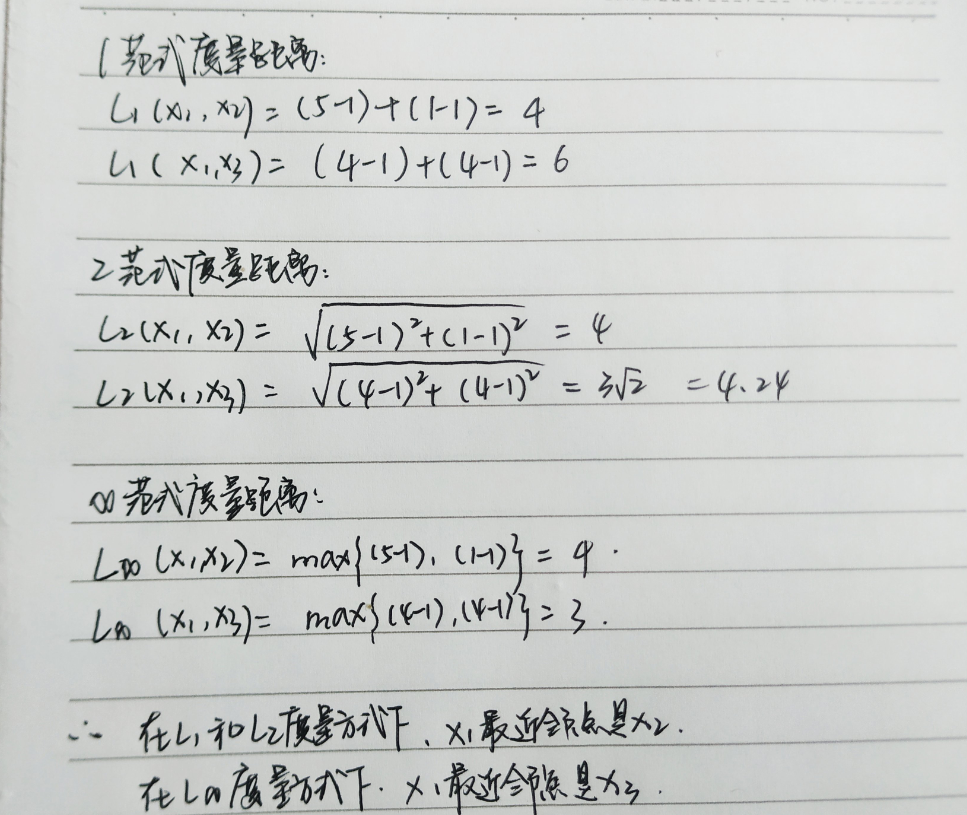 1范式度量距离:
L₁(x₁, x₂) = (5-1)+(1-1) = 4
L₁(x₁,x₃) = (4-1)+(4-1) = 6
2范式度量距离:
L₂(x₁, x₂) = √((5-1)²+(1-1)²) = 4
L₂(x₁,x₃) = √((4-1)²+(4-1)²) = 3√2 = 4.24
∞范式度量距离:
L∞(x₁,x₂) = max{(5-1), (1-1)} = 4.
L∞(x₁,x₃) = max{(4-1),(4-1)} = 3.
∴ 在L₁和L₂度量方式下, x₁最近邻点是x₂.
在L∞度量方式下. x₁最近邻点是x₃.